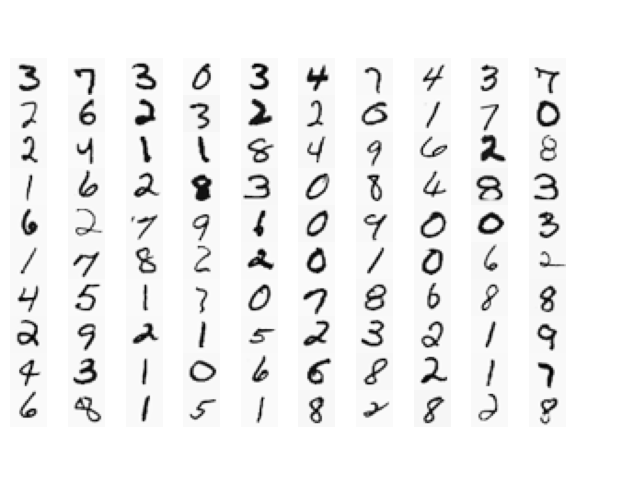 3 7 3 0 3 4 7 4 3 7
2 6 2 3 2 2 0 1 7 0
2 4 1 1 8 4 9 6 2 8
1 6 2 8 3 0 8 4 8 3
6 2 7 9 6 0 9 0 0 3
1 7 8 2 2 0 1 0 6 2
4 5 1 7 0 7 8 6 8 8
2 9 2 1 5 2 3 2 1 9
4 3 1 0 6 6 8 2 1 7
6 8 1 5 1 8 2 8 2 8